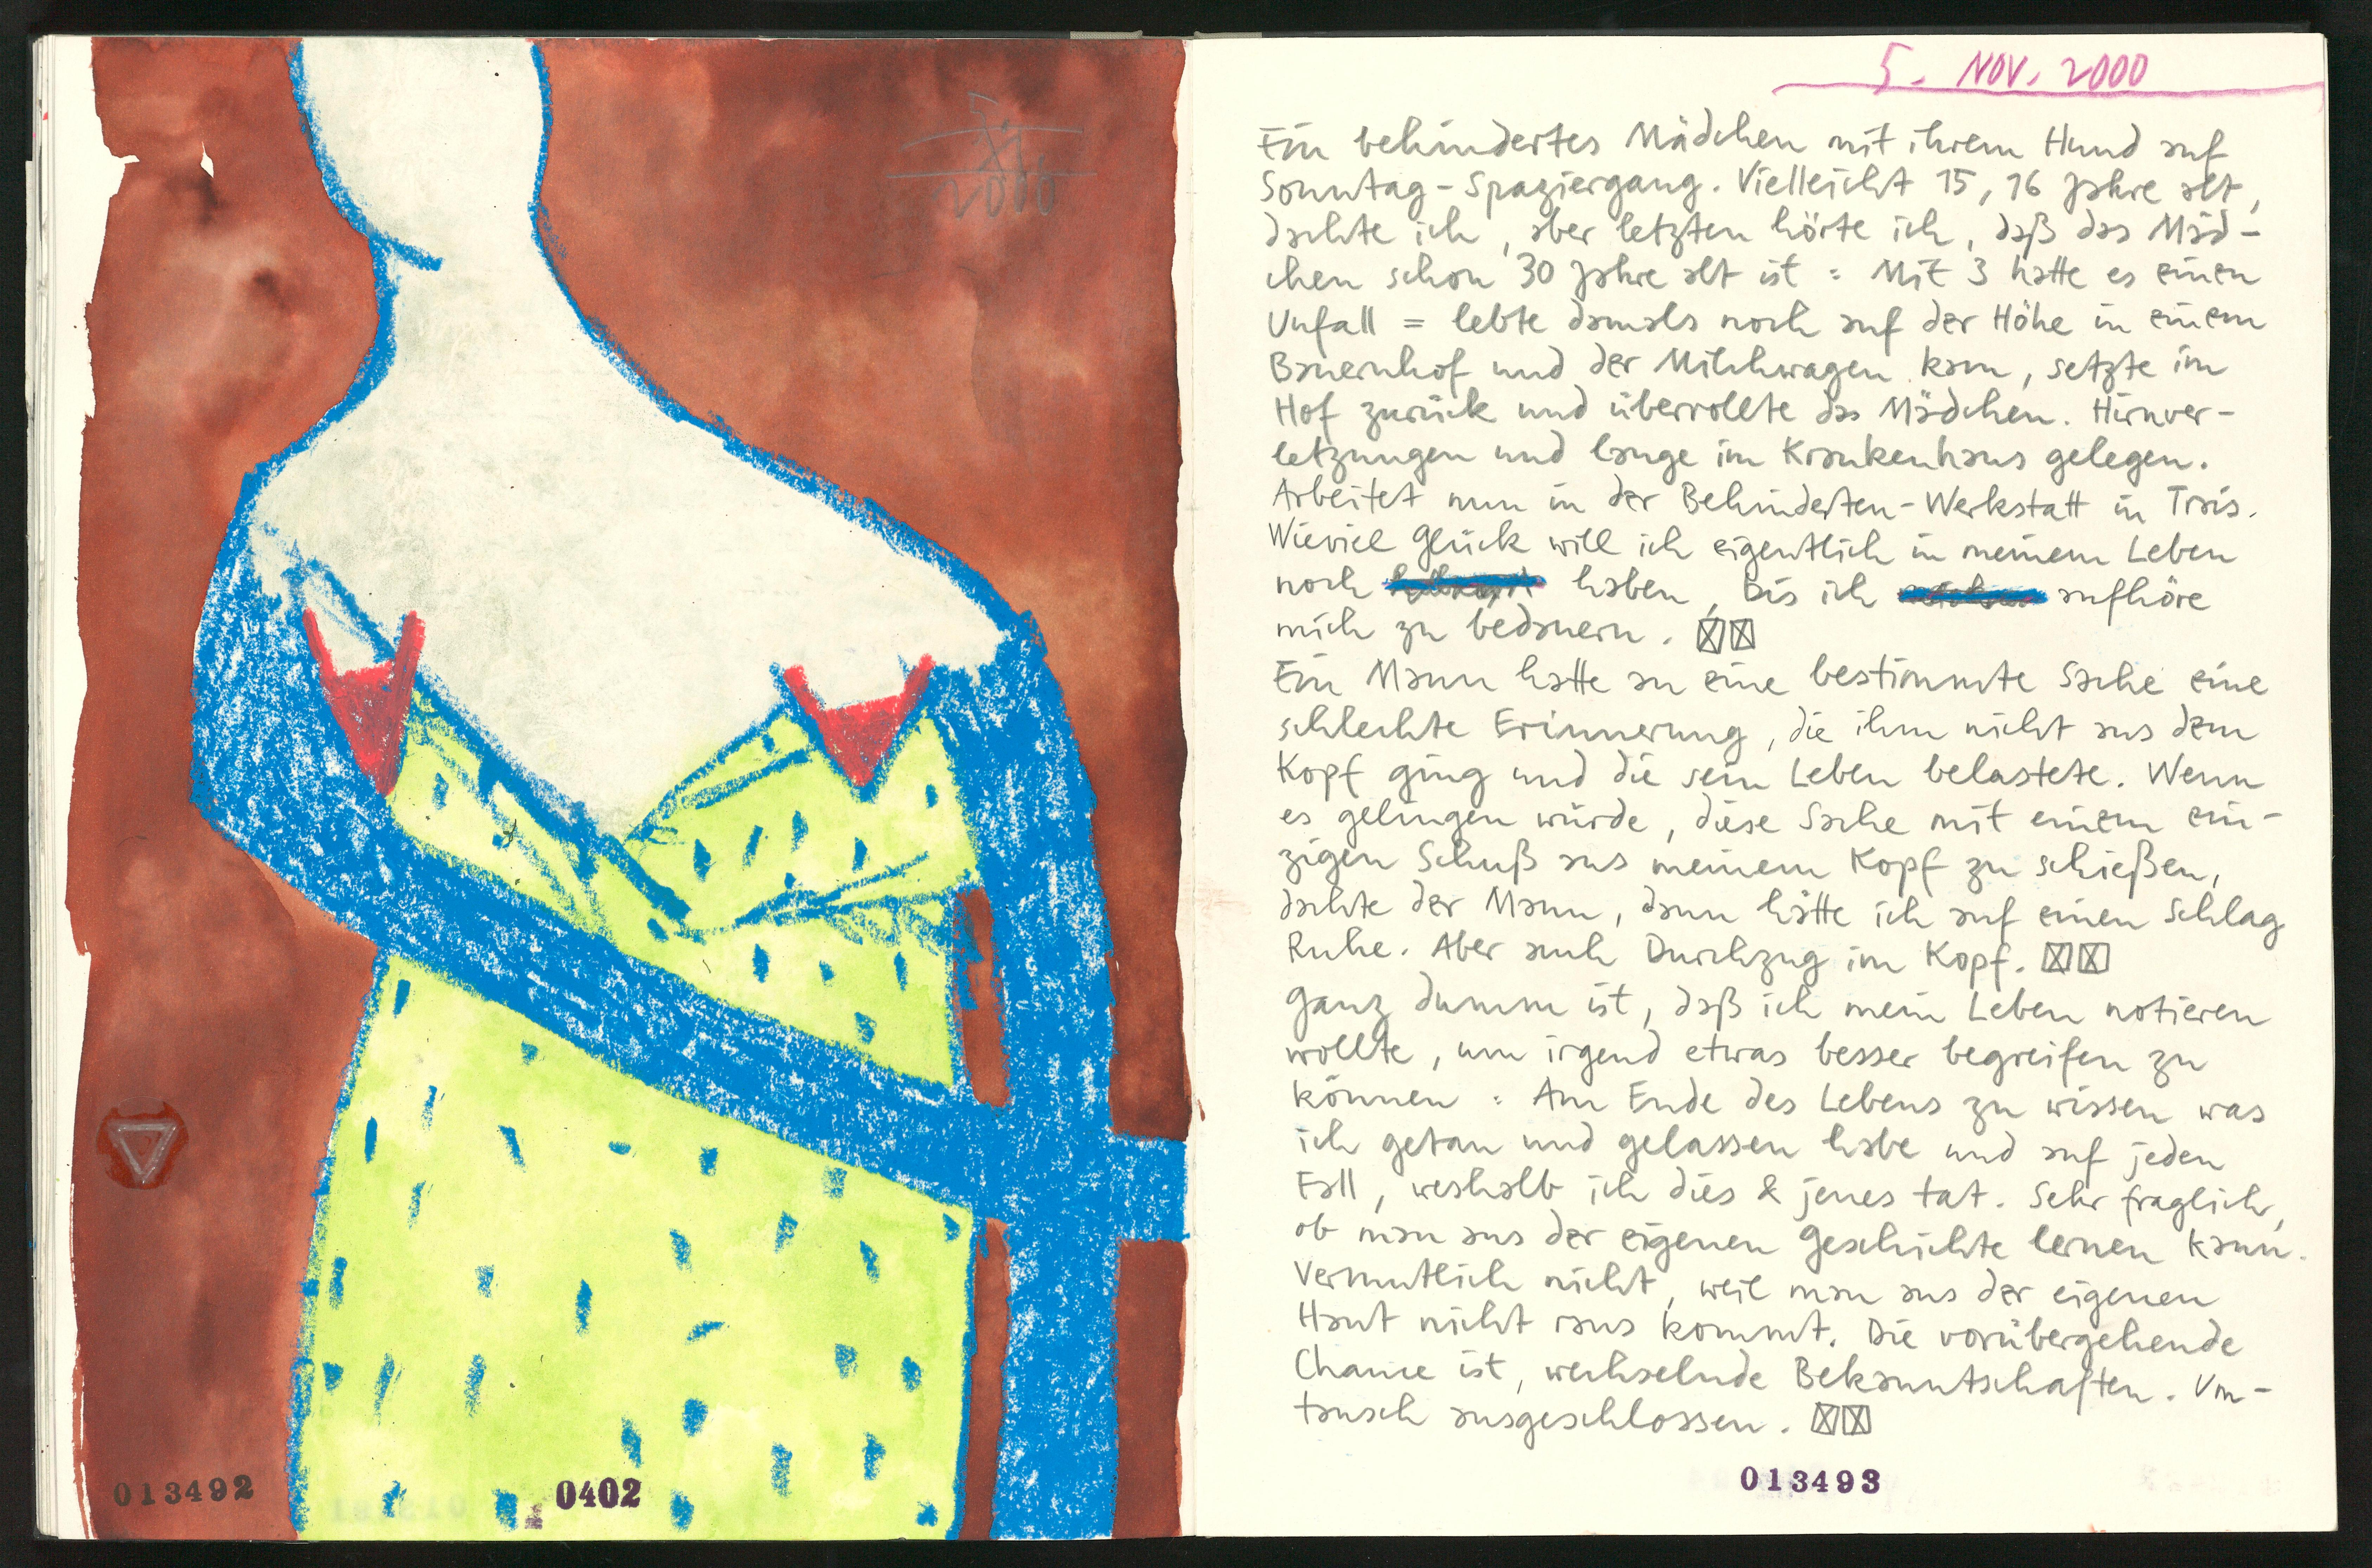 5.
11.
2000
013492
0402
5. NOV. 2000
Ein behindertes Mädchen mit ihrem Hund auf
Sonntag-Spaziergang. Vielleicht 15, 16 Jahre alt,
dachte ich, aber letzten hörte ich, daß das Mäd-
chen schon 30 Jahre alt ist: Mit 3 hatte es einen
Unfall = lebte damals noch auf der Höhe in einem
Bauernhof und der Milchwagen kam, setzte im
Hof zurück und überrollte das Mädchen. Hirnver-
letzungen und lange im Krankenhaus gelegen.
Arbeitet nun in der Behinderten-Werkstatt in Trais.
Wieviel Glück will ich eigentlich in meinem Leben
noch haben, bis ich aufhöre
mich zu bedauern.
Ein Mann hatte an eine bestimmte Sache eine
schlechte Erinnerung, die ihm nicht aus dem
Kopf ging und die sein Leben belastete. Wenn
es gelingen würde, diese Sache mit einem ein-
zigen Schuß aus meinem Kopf zu schießen,
dachte der Mann, dann hätte ich auf einen Schlag
Ruhe. Aber auch Durchzug im Kopf.
Ganz dumm ist, daß ich mein Leben notieren
wollte, um irgend etwas besser begreifen zu
können: Am Ende des Lebens zu wissen was
ich getan und gelassen habe und auf jeden
Fall, weshalb ich dies & jenes tat. Sehr fraglich,
ob man aus der eigenen Geschichte lernen kann.
Vermutlich nicht, weil man aus der eigenen
Haut nicht raus kommt. Die vorübergehende
Chance ist, wechselnde Bekanntschaften. Um-
tausch ausgeschlossen.
013493